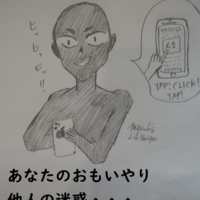 ヒッヒッヒッ!!
TAP! CLICK!
TAP!
あなたのおもいやり
他人の迷惑・・・